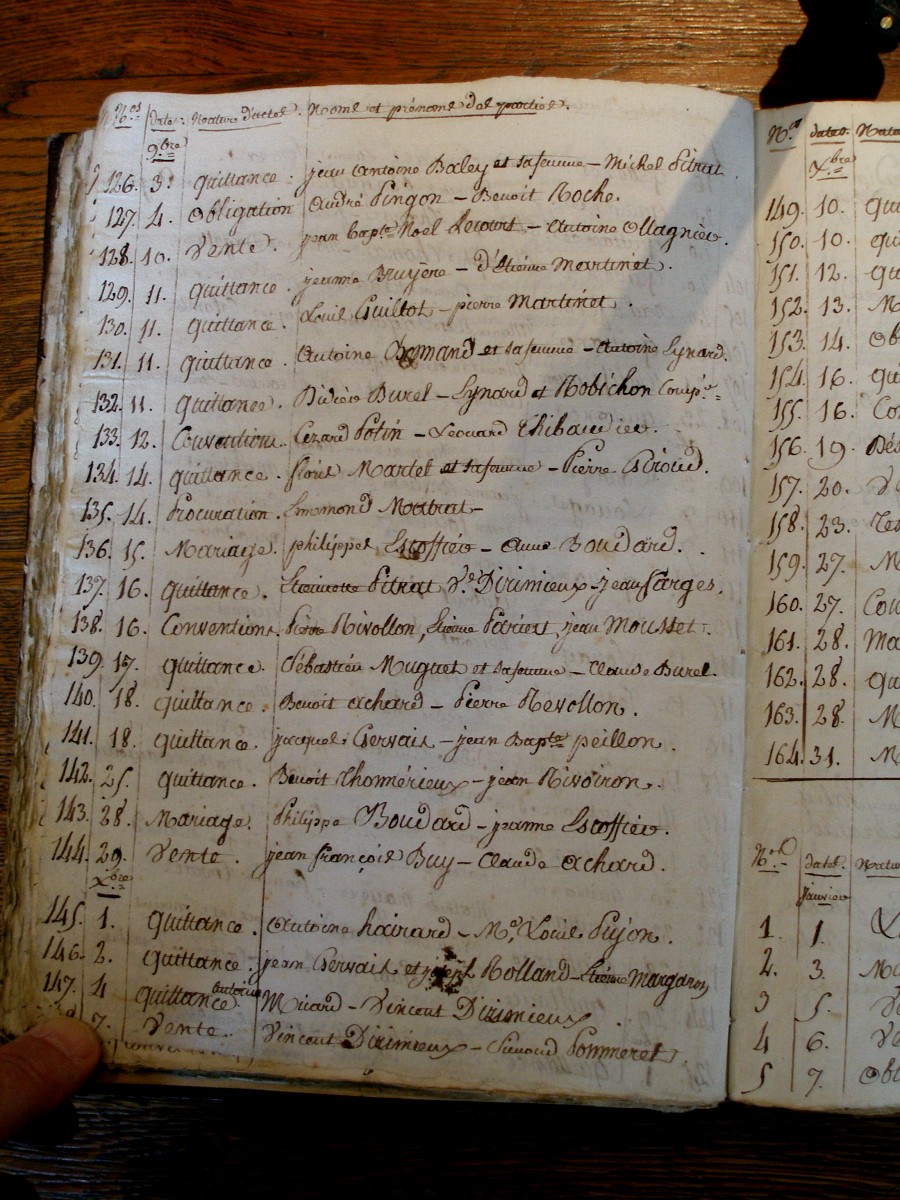 Nos dates. Nature d'actes. Noms et prénoms des parties.
9.bre
126. 3. quittance. jean antoine Baley et sa femme – Michel Pitrat
127. 4. Obligation andré Pingon – Benoit Roche.
128. 10. Vente. jean bapte. Noel Lecourt – antoine Ollagnier.
129. 11. quittance. jeanne Bruyère – d'Etienne Martinet.
130. 11. quittance. Louis Guillot – pierre Martinet.
131. 11. quittance. antoine et sa femme – antoine Lynard.
132. 11. quittance. Didier Burel – Lynard et Robichon Comp.e
133. 12. Conventions. Cezard Potin – Leonard Thibaudier.
134. 14. quittance. Martel et sa femme – Pierre Giroud.
135. 14. Procuration. Matrat –
136. 15. Mariage. philippe Escoffier – anne Boudard.
137. 16. quittance. Pitrat Ve. Dirimieux – jean Farges.
138. 16. Conventions. Pierre Rivollon, Etienne jean Mousset.
139. 17. quittance. Sébastien Muguet et sa femme – Claude Burel.
140. 18. quittance. Benoit achard – Pierre Revollon.
141. 18. quittance. jacques Gervais – jean Bapte. peillon.
142. 25. quittance. Benoit Thomérieux – jean Rivoiron.
143. 28. Mariage. Philippe Boudard – jeanne Escoffier.
144. 29. Vente. jean françois Buy – Claude achard.
X.bre
145. 1. quittance. antoine hairard – Me. Louis Pujon.
146. 2. quittance. jean Gervais et joseph Rolland – Etienne Margaron
147. 4 quittance antoine Micard – Vincent Dirimieux.
7. Vente. Vincent Dirimieux – Simond Pommeret.
Nos dates. Nat
X.bre
149. 10. qu
150. 10. qu
151. 12. qu
152. 13. M
153. 14. ob
154. 16. qu
155. 16. Co
156. 19. Dés
157. 20. V
158. 23. Te
159. 27. M
160. 27. Cou
161. 28. Ma
162. 28. qu
163. 28. M
164. 31. M
Nos dates. Natu
janvier
1. 1.
2. 3. M
3 5. V
4 6. Ve
5 7. Obl